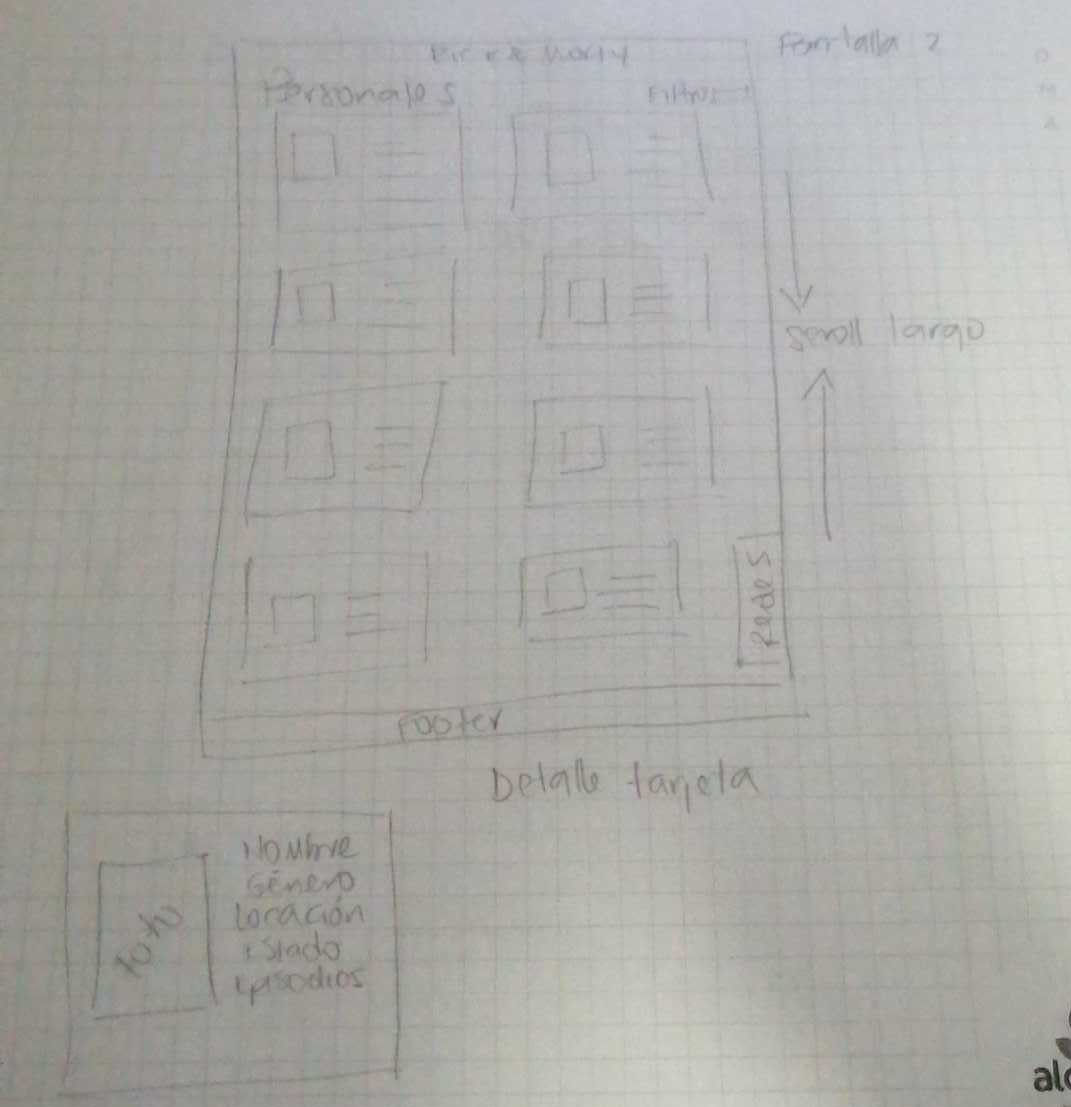 Rick & Morty
Pantalla 2
Personajes
Filtros
Scroll largo
Redes
Footer
Detalle tarjeta
Foto
Nombre
Género
Locación
Estado
Episodios